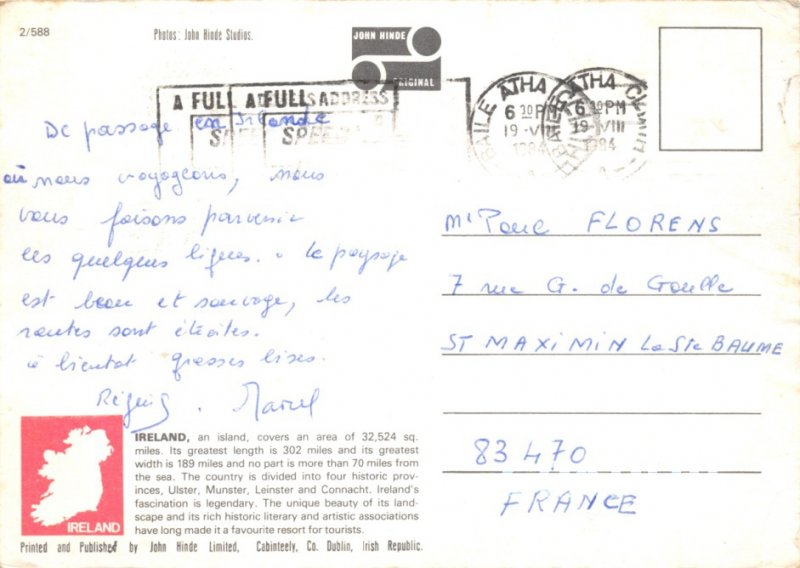 2/588
Photos: John Hinde Studios.
JOHN HINDE
ORIGINAL
A FULL A FULL ADDRESS
SPEE
BAILE ATHA
6 30 PM
19 VIII
1984
BAILE ATHA CLIATH
6 30 PM
19 VIII
1984
De passage en Irlande
où nous voyageons, nous
vous faisons parvenir
ces quelques lignes. le paysage
est beau et sauvage, les
routes sont étroites.
à bientot grosses bises.
Régine. Marcel
Mr Paul FLORENS
7 rue G. de Gaulle
ST MAXIMIN La Ste BAUME
83 470
FRANCE
IRELAND
IRELAND, an island, covers an area of 32,524 sq.
miles. Its greatest length is 302 miles and its greatest
width is 189 miles and no part is more than 70 miles from
the sea. The country is divided into four historic prov-
inces, Ulster, Munster, Leinster and Connacht. Ireland's
fascination is legendary. The unique beauty of its land-
scape and its rich historic literary and artistic associations
have long made it a favourite resort for tourists.
Printed and Published by John Hinde Limited, Cabinteely, Co. Dublin, Irish Republic.